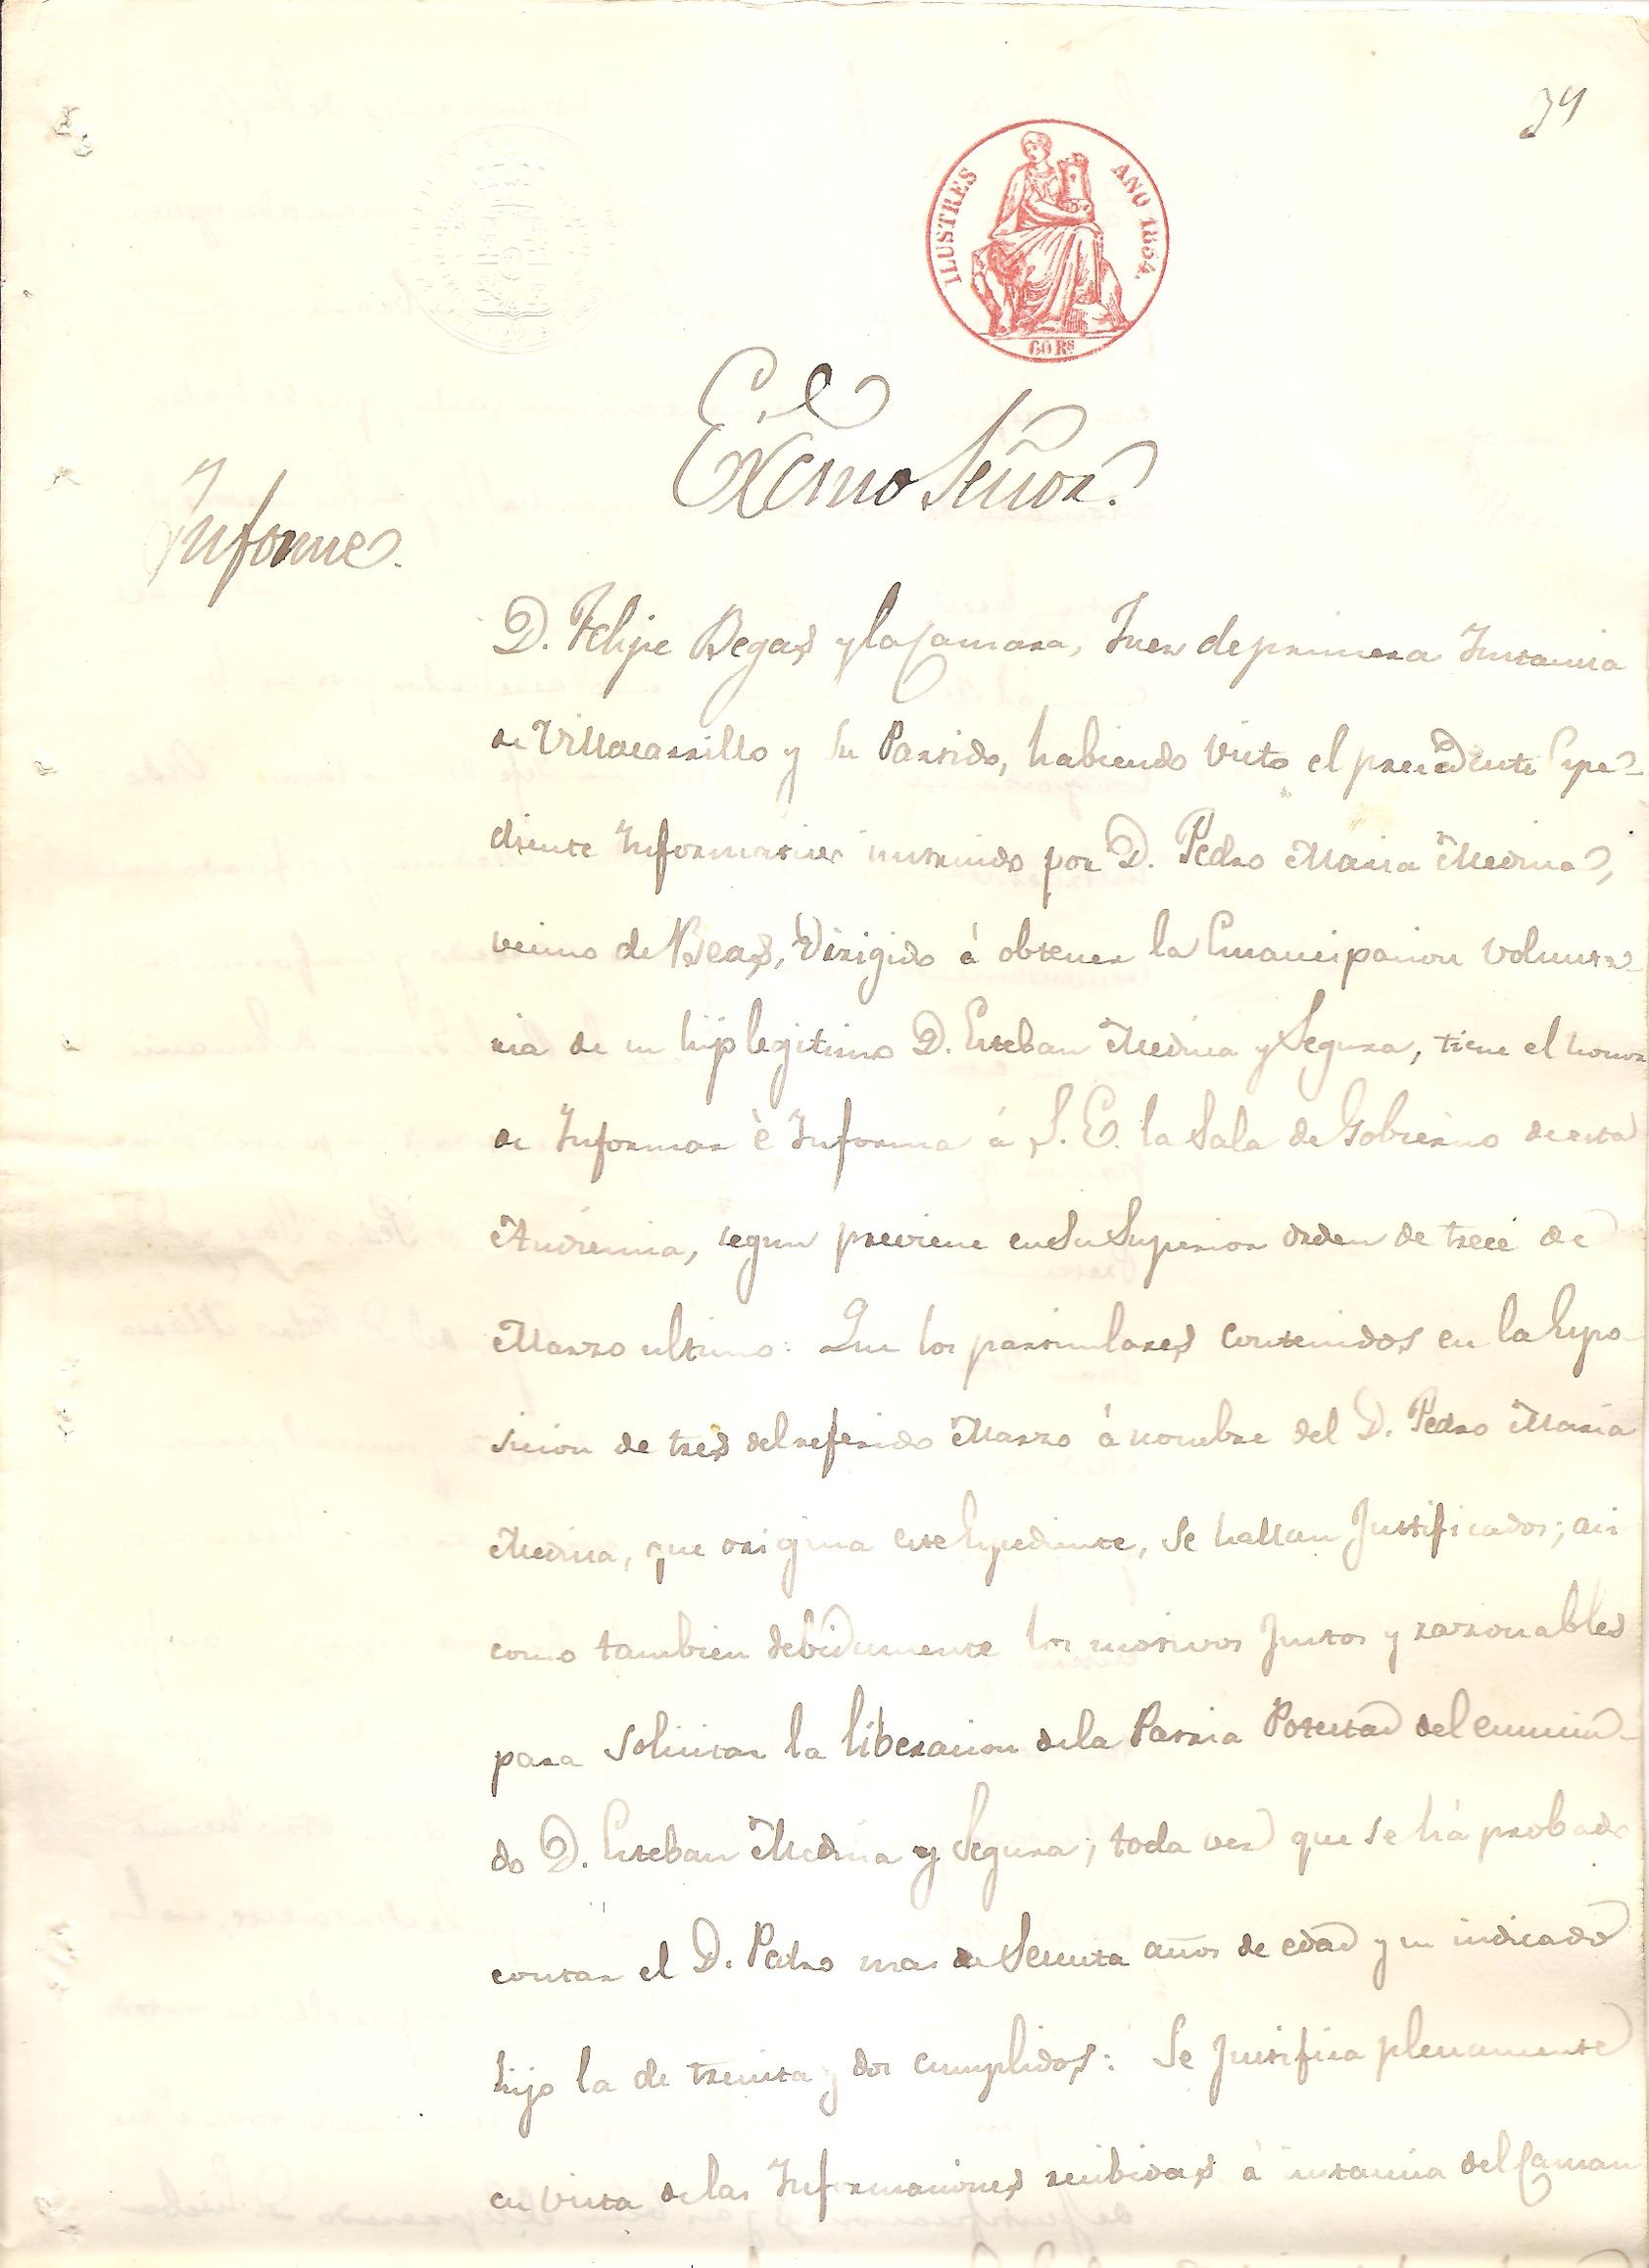 39
ILUSTRES AÑO 1854.
60 Rs
Excmo Señor.
Informe.
D. Felipe Begas y la Camara, Juez de primera Instancia
de Villacarrillo y su Partido, habiendo visto el precedente Espe-
diente Informativo instruido por D. Pedro Maria Medina,
vecino de Beas, dirigido á obtener la Emancipacion volunta-
ria de su hijo legitimo D. Esteban Medina y Segura, tiene el honor
de Informar è Informa á S. E. la Sala de Gobierno de esta
Audiencia, segun previene en su Superior orden de trece de
Marzo ultimo: Que los particulares contenidos en la Espo-
sicion de tres del referido Marzo á nombre del D. Pedro Maria
Medina, que origina este Espediente, se hallan Justificados; asi
como tambien debidamente los motivos Justos y razonables
para solicitar la liberacion de la Patria Potestad del enuncia-
do D. Esteban Medina y Segura; toda vez que se há probado
contar el D. Pedro mas de Setenta años de edad y su indicado
hijo la de treinta y dos cumplidos: Se Justifica plenamente
en vista de las Informaciones recibidas á instancia del